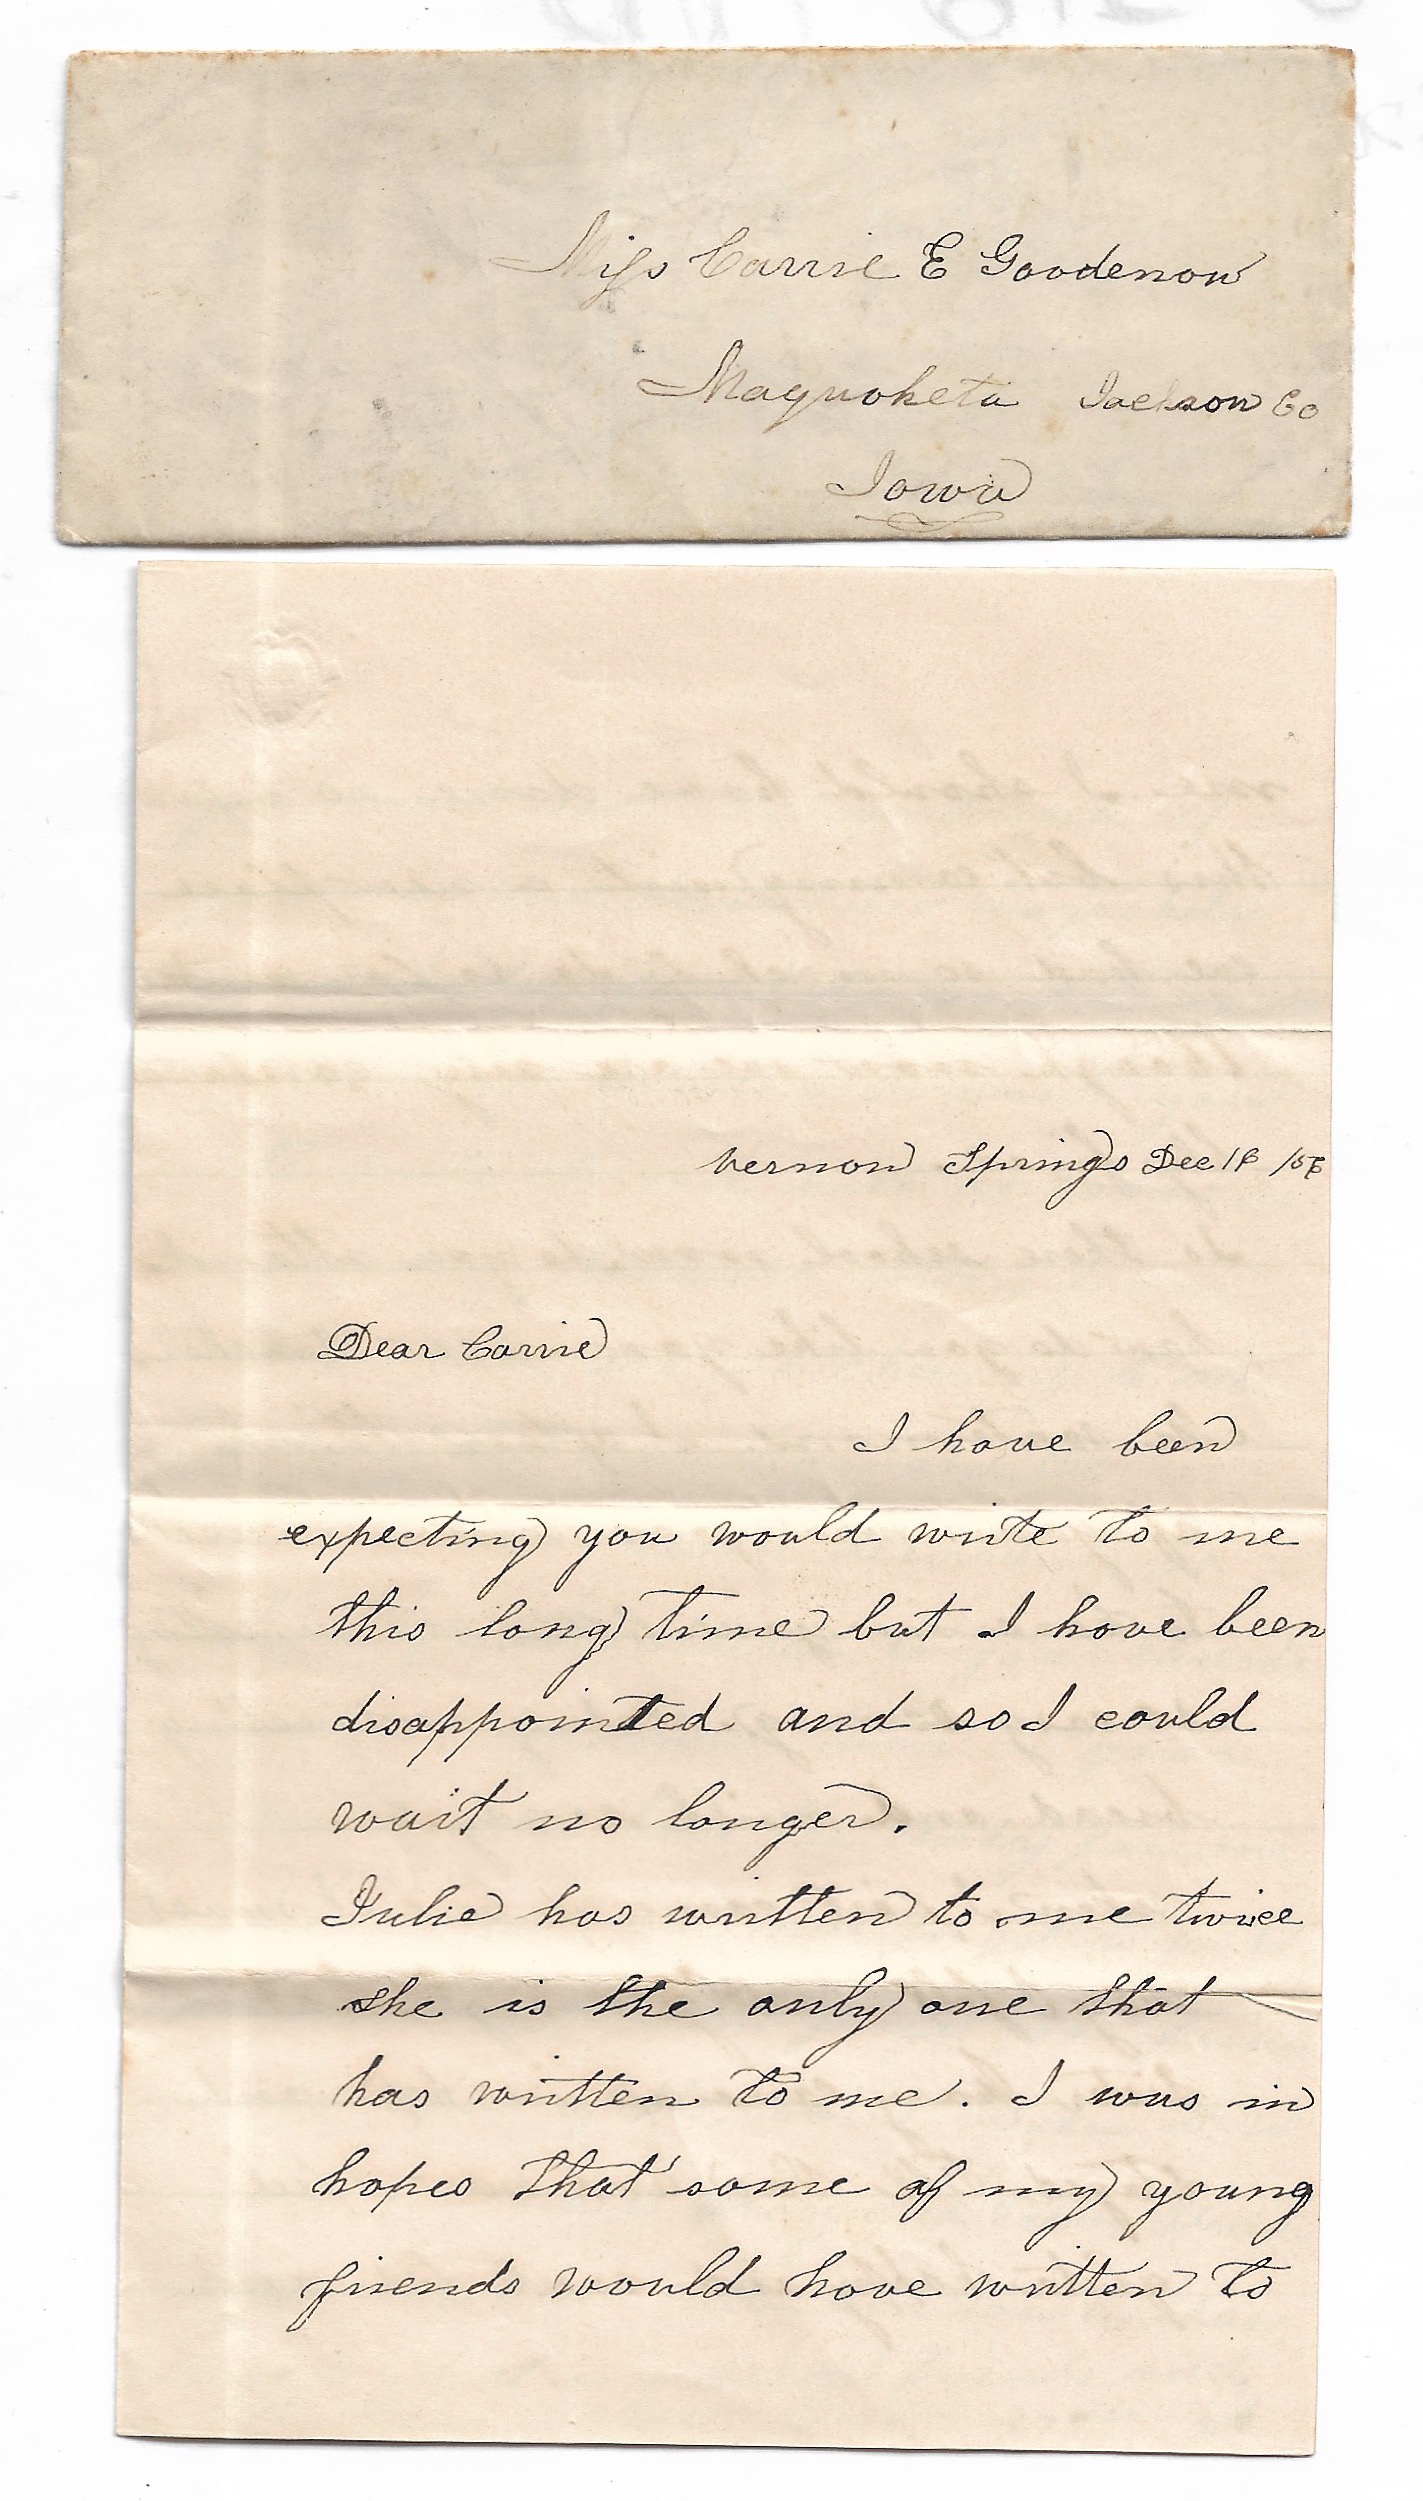 Miss Carrie E Goodenow
Maquoketa Jackson Co
Iowa
Vernon Springs Dec
Dear Carrie
I have been
expecting you would write to me
this long time but I have been
disappointed and so I could
wait no longer.
Julie has written to me twice
she is the only one that
has written to me. I was in
hopes that some of my young
friends would have written to